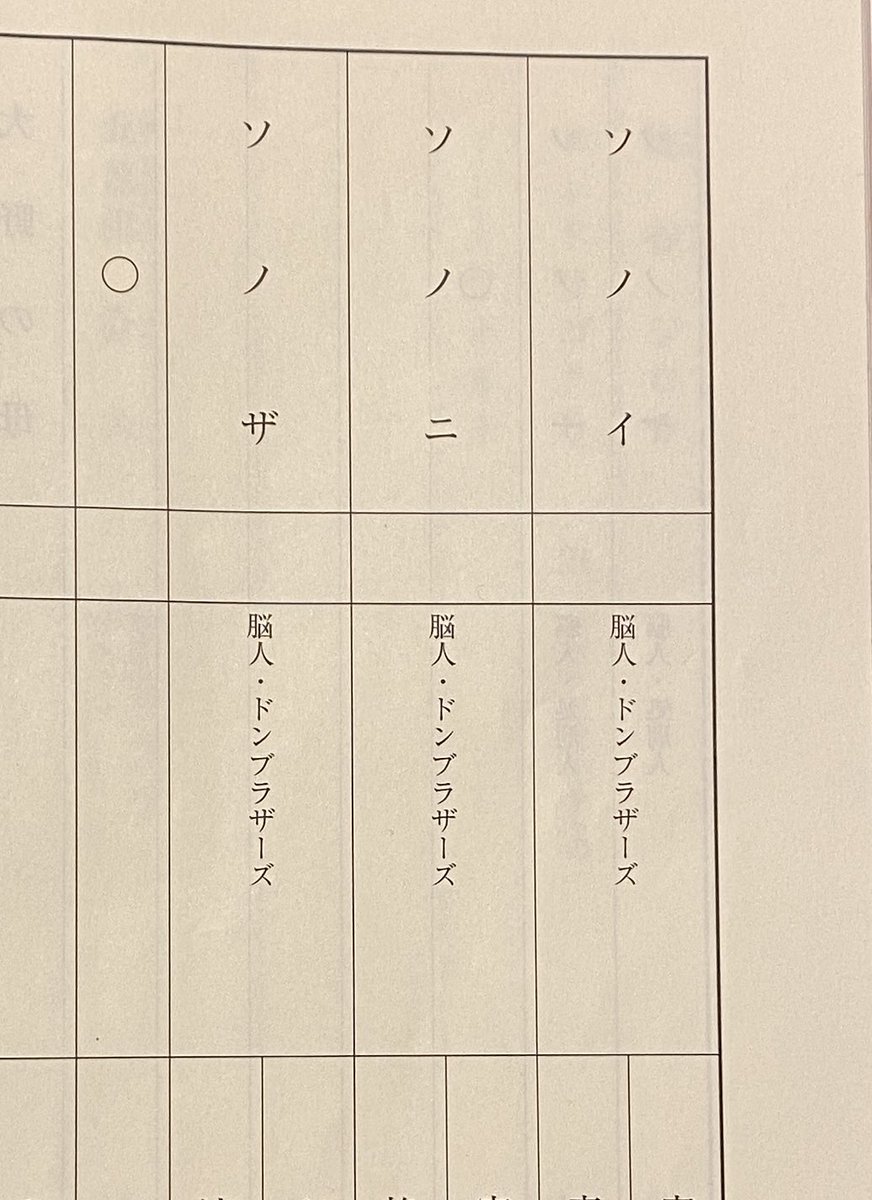 ソノイ
脳人・ドンブラザーズ
ソノニ
脳人・ドンブラザーズ
ソノザ
脳人・ドンブラザーズ
〇